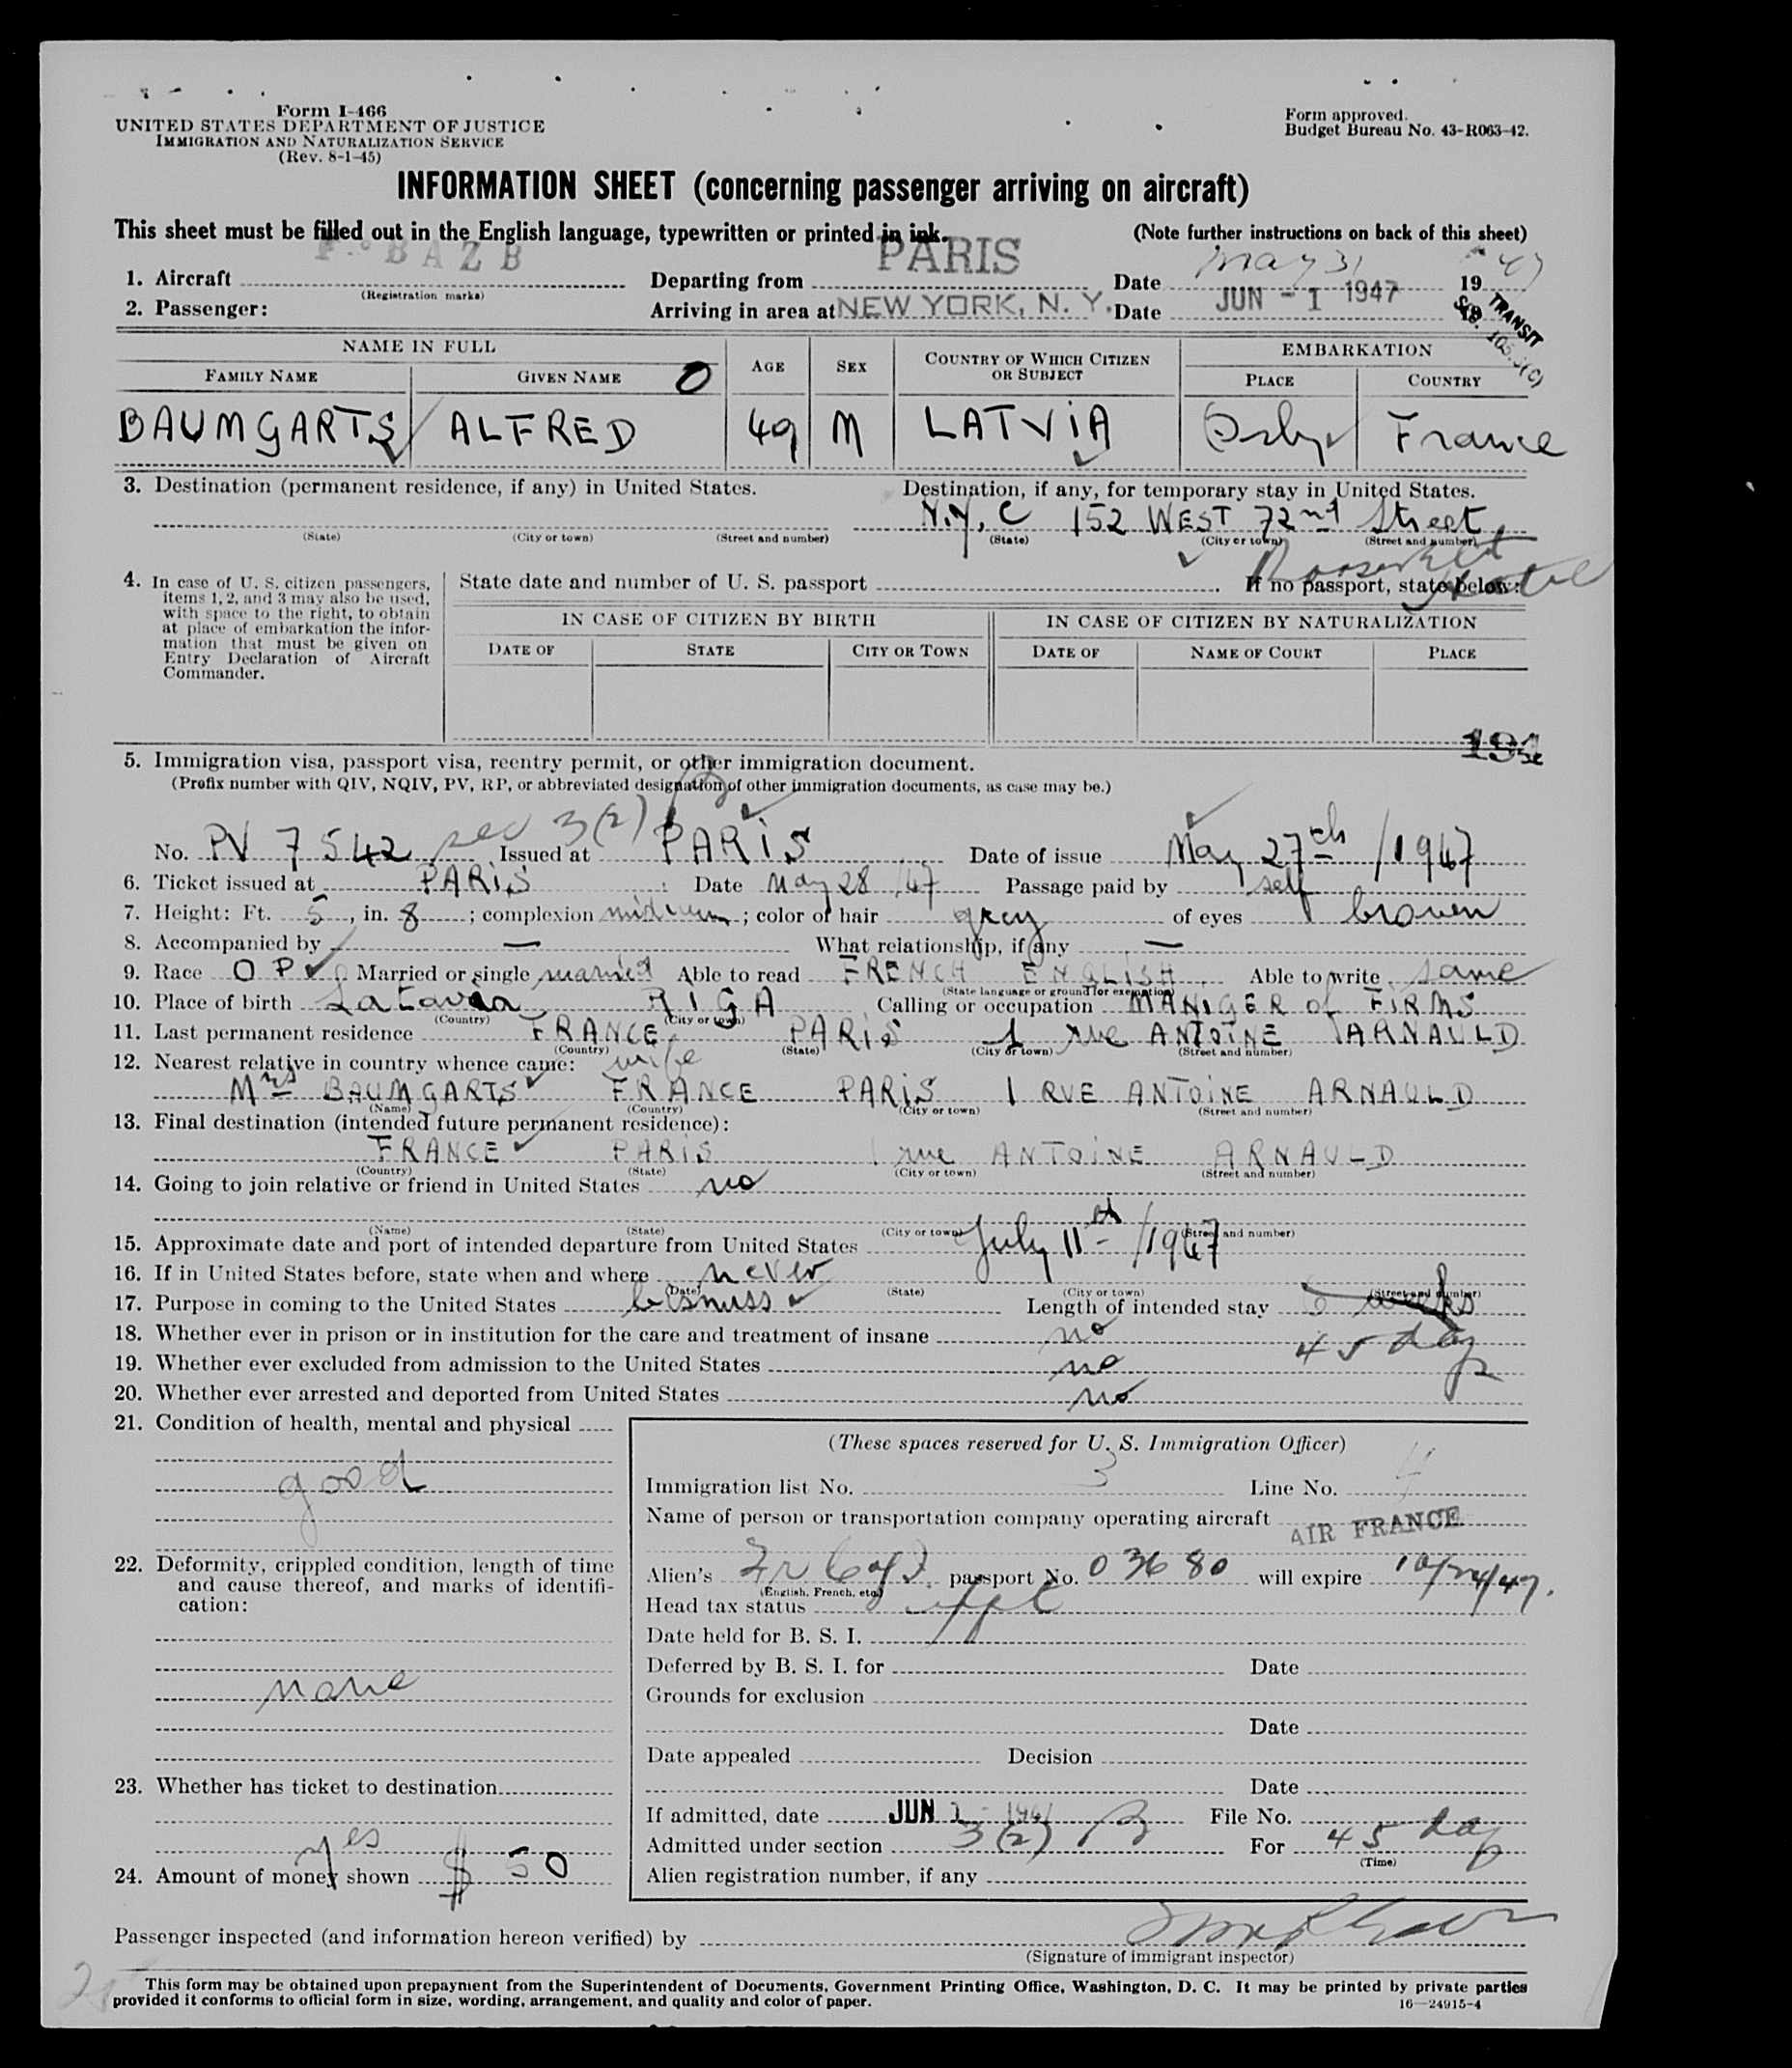 Form I-466
UNITED STATES DEPARTMENT OF JUSTICE
IMMIGRATION AND NATURALIZATION SERVICE
(Rev. 8-1-45)
Form approved.
Budget Bureau No. 43-R063-42.
INFORMATION SHEET (concerning passenger arriving on aircraft)
This sheet must be filled out in the English language, typewritten or printed in ink. (Note further instructions on back of this sheet)
1. Aircraft F-BAZB (Registration marks) Departing from PARIS Date May 31 1947
2. Passenger: Arriving in area at NEW YORK, N. Y. Date JUN - 1 1947 19
TRANSIT
NAME IN FULL
FAMILY NAME GIVEN NAME O AGE SEX COUNTRY OF WHICH CITIZEN OR SUBJECT EMBARKATION PLACE COUNTRY
BAUMGARTS ALFRED 49 M LATViA Orly France
3. Destination (permanent residence, if any) in United States. Destination, if any, for temporary stay in United States.
N.Y. C 152 WEST 72nd Street
(State) (City or town) (Street and number) (State) (City or town) (Street and number)
Roosevelt Hotel
4. In case of U. S. citizen passengers, items 1, 2, and 3 may also be used, with space to the right, to obtain at place of embarkation the information that must be given on Entry Declaration of Aircraft Commander.
State date and number of U. S. passport If no passport, state below:
IN CASE OF CITIZEN BY BIRTH IN CASE OF CITIZEN BY NATURALIZATION
DATE OF STATE CITY OR TOWN DATE OF NAME OF COURT PLACE
5. Immigration visa, passport visa, reentry permit, or other immigration document.
(Prefix number with QIV, NQIV, PV, RP, or abbreviated designation of other immigration documents, as case may be.)
No. PV 7542 sec 3(2) Issued at PARiS Date of issue May 27th /1947
6. Ticket issued at PARiS Date May 28 /47 Passage paid by self
7. Height: Ft. 5, in. 8; complexion midium; color of hair grey of eyes brown
8. Accompanied by — What relationship, if any —
9. Race O P Married or single married Able to read FRENCH ENGLISH Able to write same
(State language or ground for exemption)
10. Place of birth Latavia RIGA Calling or occupation MANIGER of FIRMS
(Country) (City or town)
11. Last permanent residence FRANCE PARiS 1 rue ANTOINE ARNAULD
(Country) (State) (City or town) (Street and number)
12. Nearest relative in country whence came: wife
Mrs BAUMGARTS FRANCE PARiS 1 RUE ANTOiNE ARNAULD
(Name) (Country) (City or town) (Street and number)
13. Final destination (intended future permanent residence):
FRANCE PARiS 1 rue ANTOiNE ARNAULD
(Country) (State) (City or town) (Street and number)
14. Going to join relative or friend in United States no
(Name) (State) (City or town) (Street and number)
15. Approximate date and port of intended departure from United States July 11th /1947
16. If in United States before, state when and where never
(Date) (State) (City or town) (Street and number)
17. Purpose in coming to the United States Length of intended stay 6 weeks
18. Whether ever in prison or in institution for the care and treatment of insane no 45 days
19. Whether ever excluded from admission to the United States no
20. Whether ever arrested and deported from United States no
21. Condition of health, mental and physical
good
22. Deformity, crippled condition, length of time and cause thereof, and marks of identification:
none
23. Whether has ticket to destination
yes
24. Amount of money shown $ 50
(These spaces reserved for U. S. Immigration Officer)
Immigration list No. 3 Line No. 4
Name of person or transportation company operating aircraft AIR FRANCE
Alien's passport No. 03680 will expire 10/24/47.
(English, French, etc.)
Head tax status
Date held for B. S. I.
Deferred by B. S. I. for Date
Grounds for exclusion
Date
Date appealed Decision
Date
If admitted, date JUN File No.
Admitted under section 3(2) B For 45 days
(Time)
Alien registration number, if any
Passenger inspected (and information hereon verified) by
(Signature of immigrant inspector)
This form may be obtained upon prepayment from the Superintendent of Documents, Government Printing Office, Washington, D. C. It may be printed by private parties
provided it conforms to official form in size, wording, arrangement, and quality and color of paper. 16—24915-4